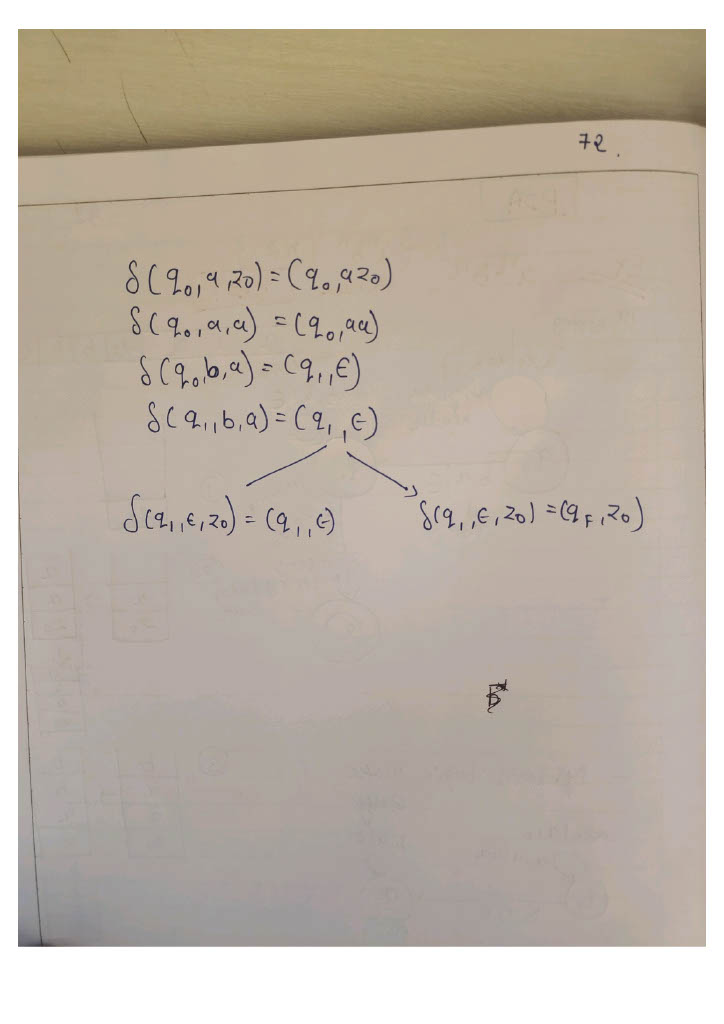 72.
δ(q₀,a,z₀)=(q₀,az₀)
δ(q₀,a,a) =(q₀,aa)
δ(q₀,b,a)=(q₁,ϵ)
δ(q₁,b,a)=(q₁,ϵ)
δ(q₁,ϵ,z₀)=(q₁,ϵ) δ(q₁,ϵ,z₀)=(q_F,z₀)